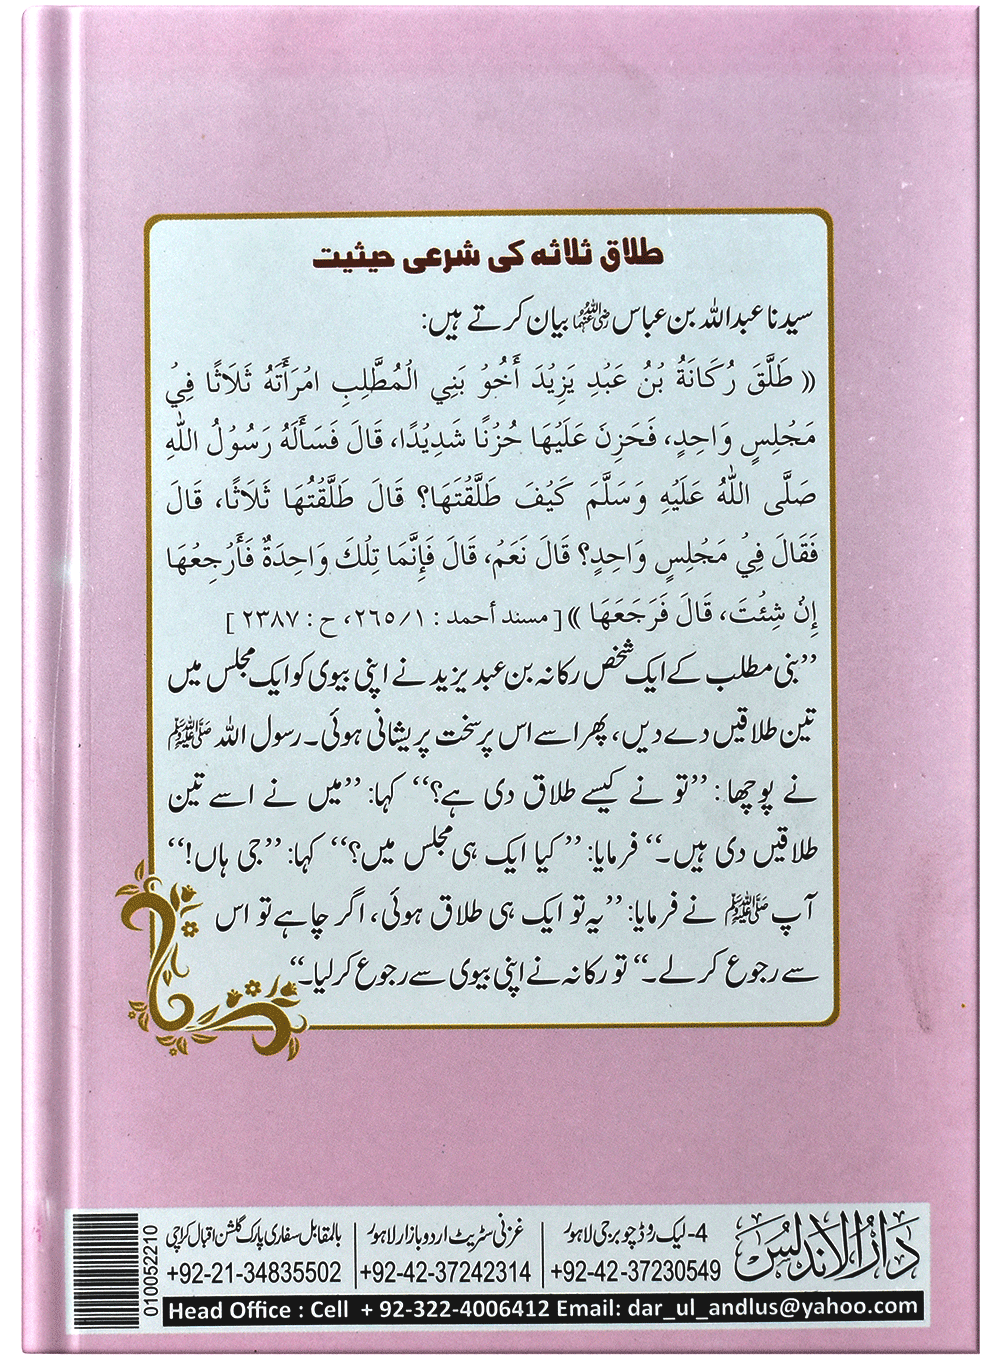 طلاق ثلاثہ کی شرعی حیثیت
سیدنا عبداللہ بن عباس رضی اللہ عنہما بیان کرتے ہیں:
(( طَلَّقَ رُكَانَةُ بْنُ عَبْدِ يَزِيْدَ أَخُوْ بَنِي الْمُطَّلِبِ امْرَأَتَهُ ثَلَاثًا فِيْ
مَجْلِسٍ وَاحِدٍ، فَحَزِنَ عَلَيْهَا حُزْنًا شَدِيْدًا، قَالَ فَسَأَلَهُ رَسُوْلُ اللّٰهِ
صَلَّى اللّٰهُ عَلَيْهِ وَسَلَّمَ كَيْفَ طَلَّقْتَهَا؟ قَالَ طَلَّقْتُهَا ثَلَاثًا، قَالَ
فَقَالَ فِيْ مَجْلِسٍ وَاحِدٍ؟ قَالَ نَعَمْ، قَالَ فَإِنَّمَا تِلْكَ وَاحِدَةٌ فَأَرْجِعْهَا
إِنْ شِئْتَ، قَالَ فَرَجَعَهَا )) [ مسند أحمد : ٢٦٥/١، ح : ٢٣٨٧ ]
”بنی مطلب کے ایک شخص رکانہ بن عبد یزید نے اپنی بیوی کو ایک مجلس میں
تین طلاقیں دے دیں، پھر اسے اس پر سخت پریشانی ہوئی۔ رسول اللہ ﷺ
نے پوچھا: ”تو نے کیسے طلاق دی ہے؟“ کہا: ”میں نے اسے تین
طلاقیں دی ہیں۔“ فرمایا: ”کیا ایک ہی مجلس میں؟“ کہا: ”جی ہاں!“
آپ ﷺ نے فرمایا: ”یہ تو ایک ہی طلاق ہوئی، اگر چاہے تو اس
سے رجوع کر لے۔“ تو رکانہ نے اپنی بیوی سے رجوع کر لیا۔“
دار الاندلس
4- لیک روڈ چوبرجی لاہور
+92-42-37230549
غزنی سٹریٹ اردو بازار لاہور
+92-42-37242314
بالمقابل سفاری پارک گلشن اقبال کراچی
+92-21-34835502
Head Office : Cell + 92-322-4006412 Email: dar_ul_andlus@yahoo.com
010052210